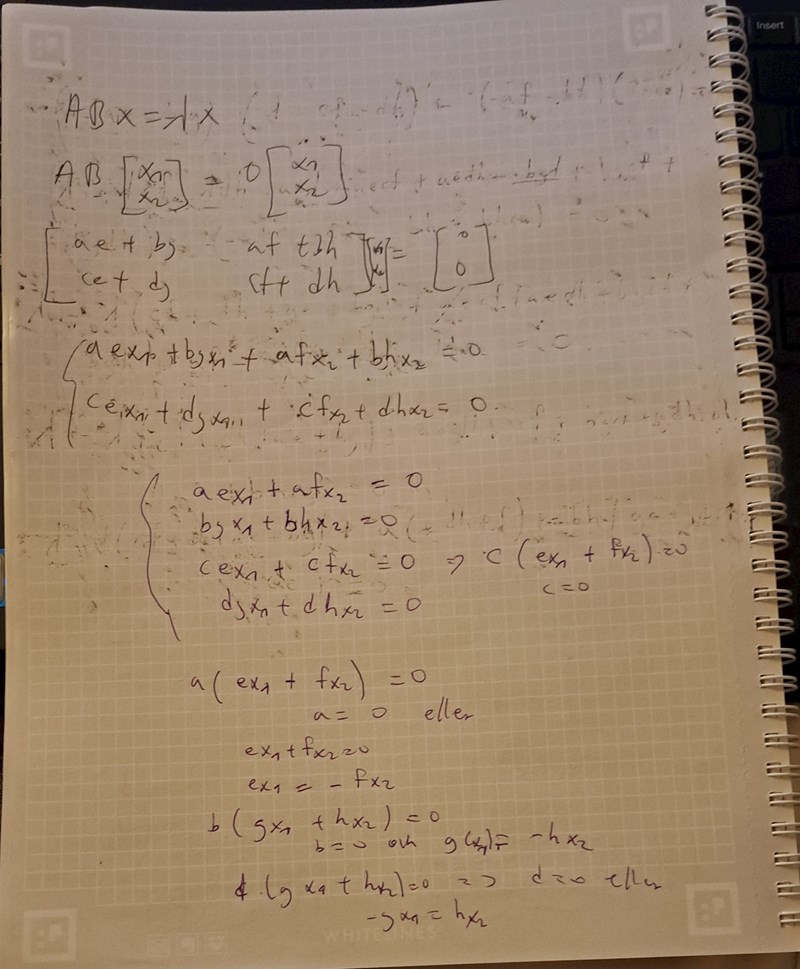 ABx = λx
AB [x₁ x₂] = 0 [x₁ x₂]
[ae + bg af + bh
ce + dg cf + dh] [x₁ x₂] = [0 0]
aex₁ + bgx₁ + afx₂ + bhx₂ = 0
cex₁ + dgx₁ + cfx₂ + dhx₂ = 0
aex₁ + afx₂ = 0
bgx₁ + bhx₂ = 0
cex₁ + cfx₂ = 0 => c (ex₁ + fx₂) = 0
c = 0
dgx₁ + dhx₂ = 0
a( ex₁ + fx₂) = 0
a = 0 eller
ex₁ + fx₂ = 0
ex₁ = - fx₂
b ( gx₁ + hx₂) = 0
b = 0 och g(x₁) = -hx₂
d (gx₁ + hx₂) = 0 => d = 0 eller
-gx₁ = hx₂
WHITELINES
Insert